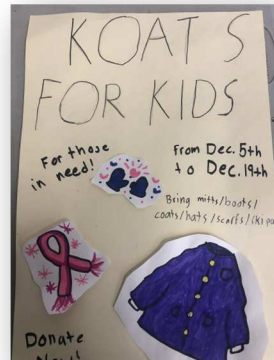 KOATS
FOR KIDS
For those
in need!
From Dec. 5th
to Dec. 19th
Bring mitts/boots/
coats/hats/scarfs/
Donate